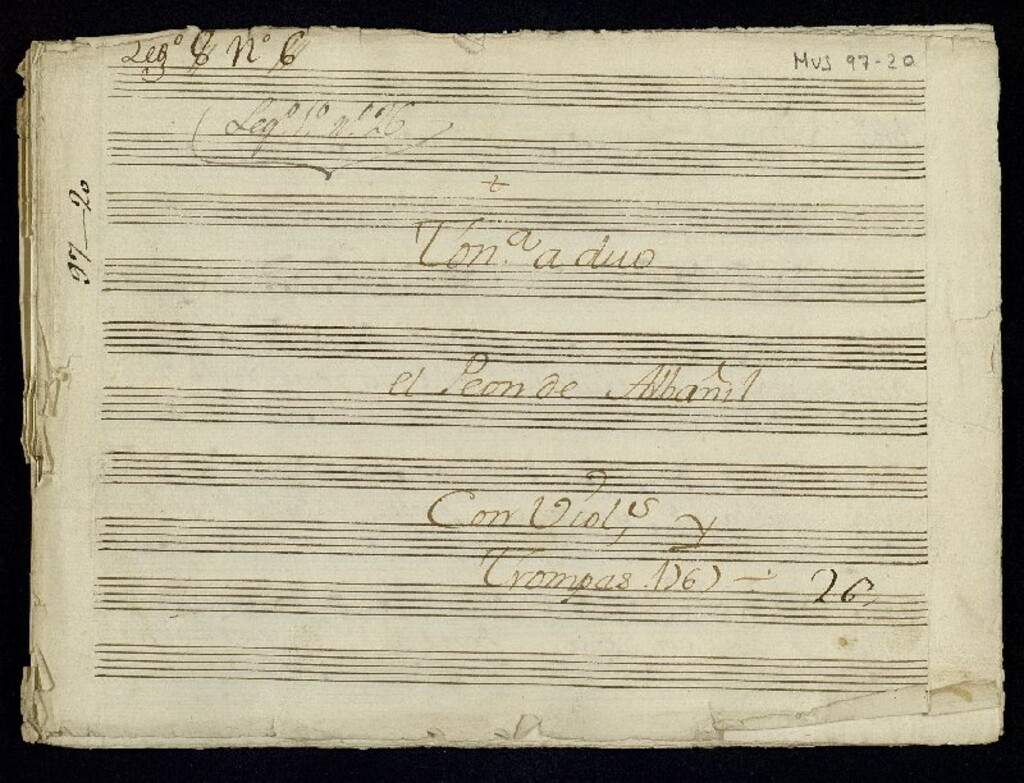 Legº 8 Nº 6
MUS 97-20
(Legº 1º nº 26)
97-20
+
Ton.ª a duo
el Peon de Albañil
Con Viol,s y
Trompas 1767 -
26,